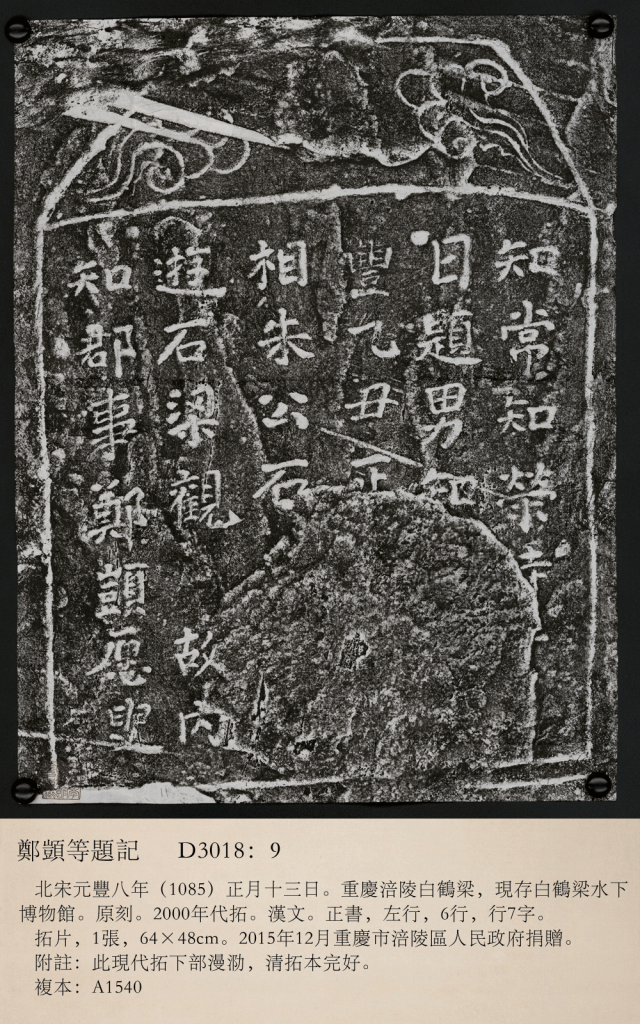 知郡事鄭顗愿叟
遊石梁觀故內
相朱公石
豐乙丑正
日題男知
知常知榮
鄭顗等題記 D3018：9
北宋元豐八年（1085）正月十三日。重慶涪陵白鶴梁，現存白鶴梁水下
博物館。原刻。2000年代拓。漢文。正書，左行，6行，行7字。
拓片，1張，64×48cm。2015年12月重慶市涪陵區人民政府捐贈。
附註：此現代拓下部漫泐，清拓本完好。
複本：A1540